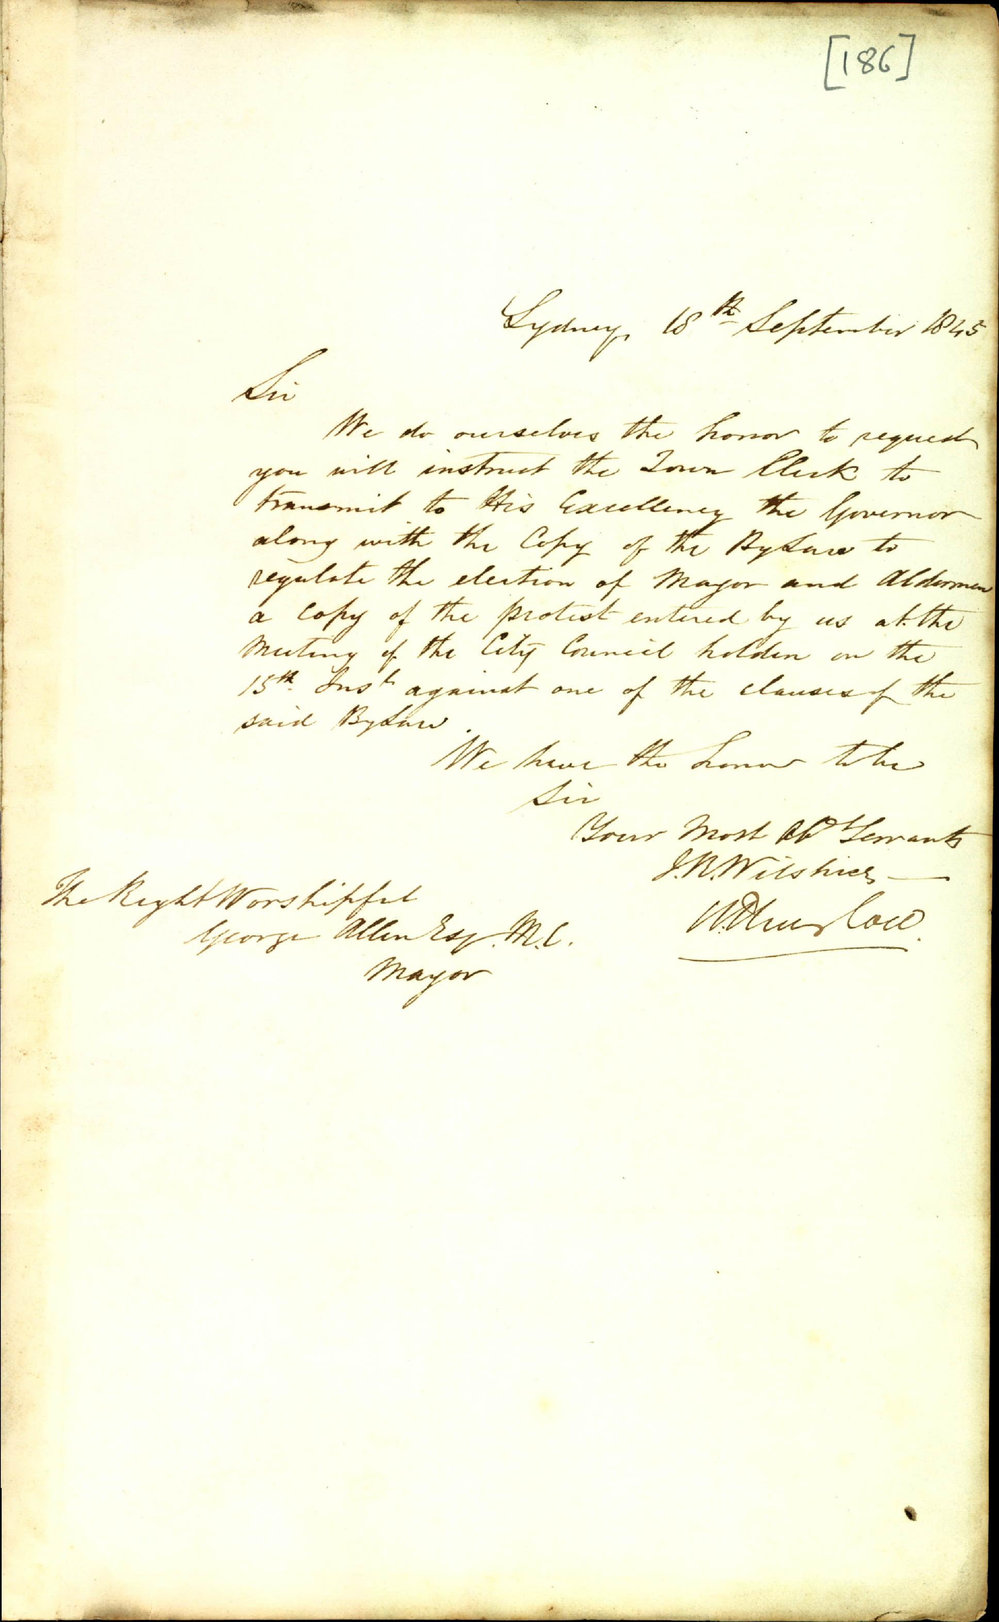 [186]
Sydney, 18th September 1845
Sir
We do ourselves the honor to request
you will instruct the Town Clerk to
transmit to His Excellency the Governor
along with the Copy of the By Law to
regulate the election of Mayor and Aldermen
a copy of the protest entered by us at the
Meeting of the City Council holden on the
15th Inst against one of the clauses of the
said By Law.
We have the honor to be
Sir
Your Most Obt Servants
J.R. Wilshire
W Thurlow.
The Right Worshipful
George Allen Esq. M.C.
Mayor